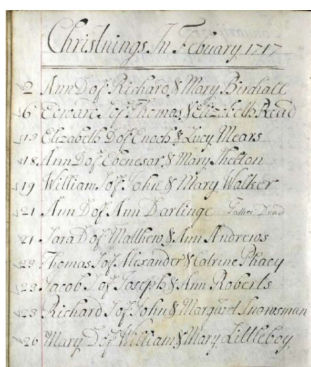 Christnings In Febuary 1717
2 Ann D of Richard & Mary Birchall
6 Edward S of Thomas & Elizabeth Read
13 Elizabeth D of Enoch & Lucy Mears
18 Ann D of Ebenesar & Mary Shelton
19 William S of John & Mary Walker
21 Ann D of Ann Darlinge Father Dead
21 Sara D of Matthew & Ann Andrews
Thomas S of Alexander & Catrine
Jacob S of Joseph & Ann Roberts
Richard S of John & Margaret
26 Mary D of William & Mary Littleboy